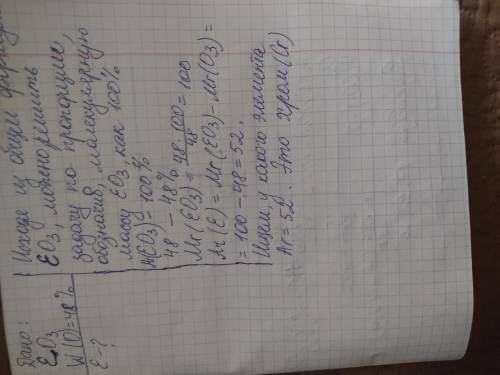 Дано:
ЕO3
W(O)=48%
Е-?
Исходя из общей
ЕO3, можно решить
задачу по пропорции,
обозначив, молекулярную
массу ЕO3, как 100%
M(ЕO3) = 100%
48 - 48%
Mr(ЕO3) = 48·100/48 = 100
Ar(Е) = Mr(ЕO3) - Mr(O3) =
= 100 - 48 = 52.
Ищем у какого элемента
Ar = 52. Это хром (Cr)